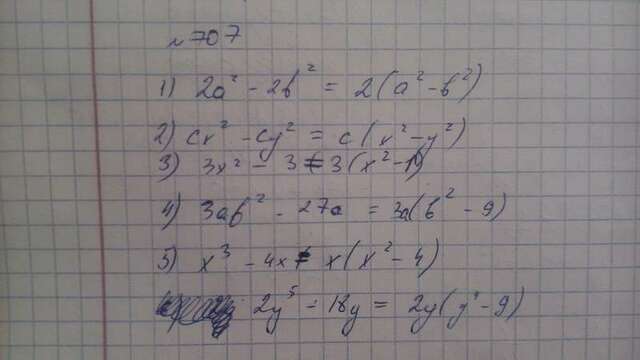 №707
1) 2a² - 2b² = 2(a² - b²)
2) cx² - cy² = c(x² - y²)
3) 3x² - 3 = 3(x² - 1)
4) 3ab² - 27a = 3a(b² - 9)
5) x³ - 4x = x(x² - 4)
2y⁵ - 18y = 2y(y⁴ - 9)